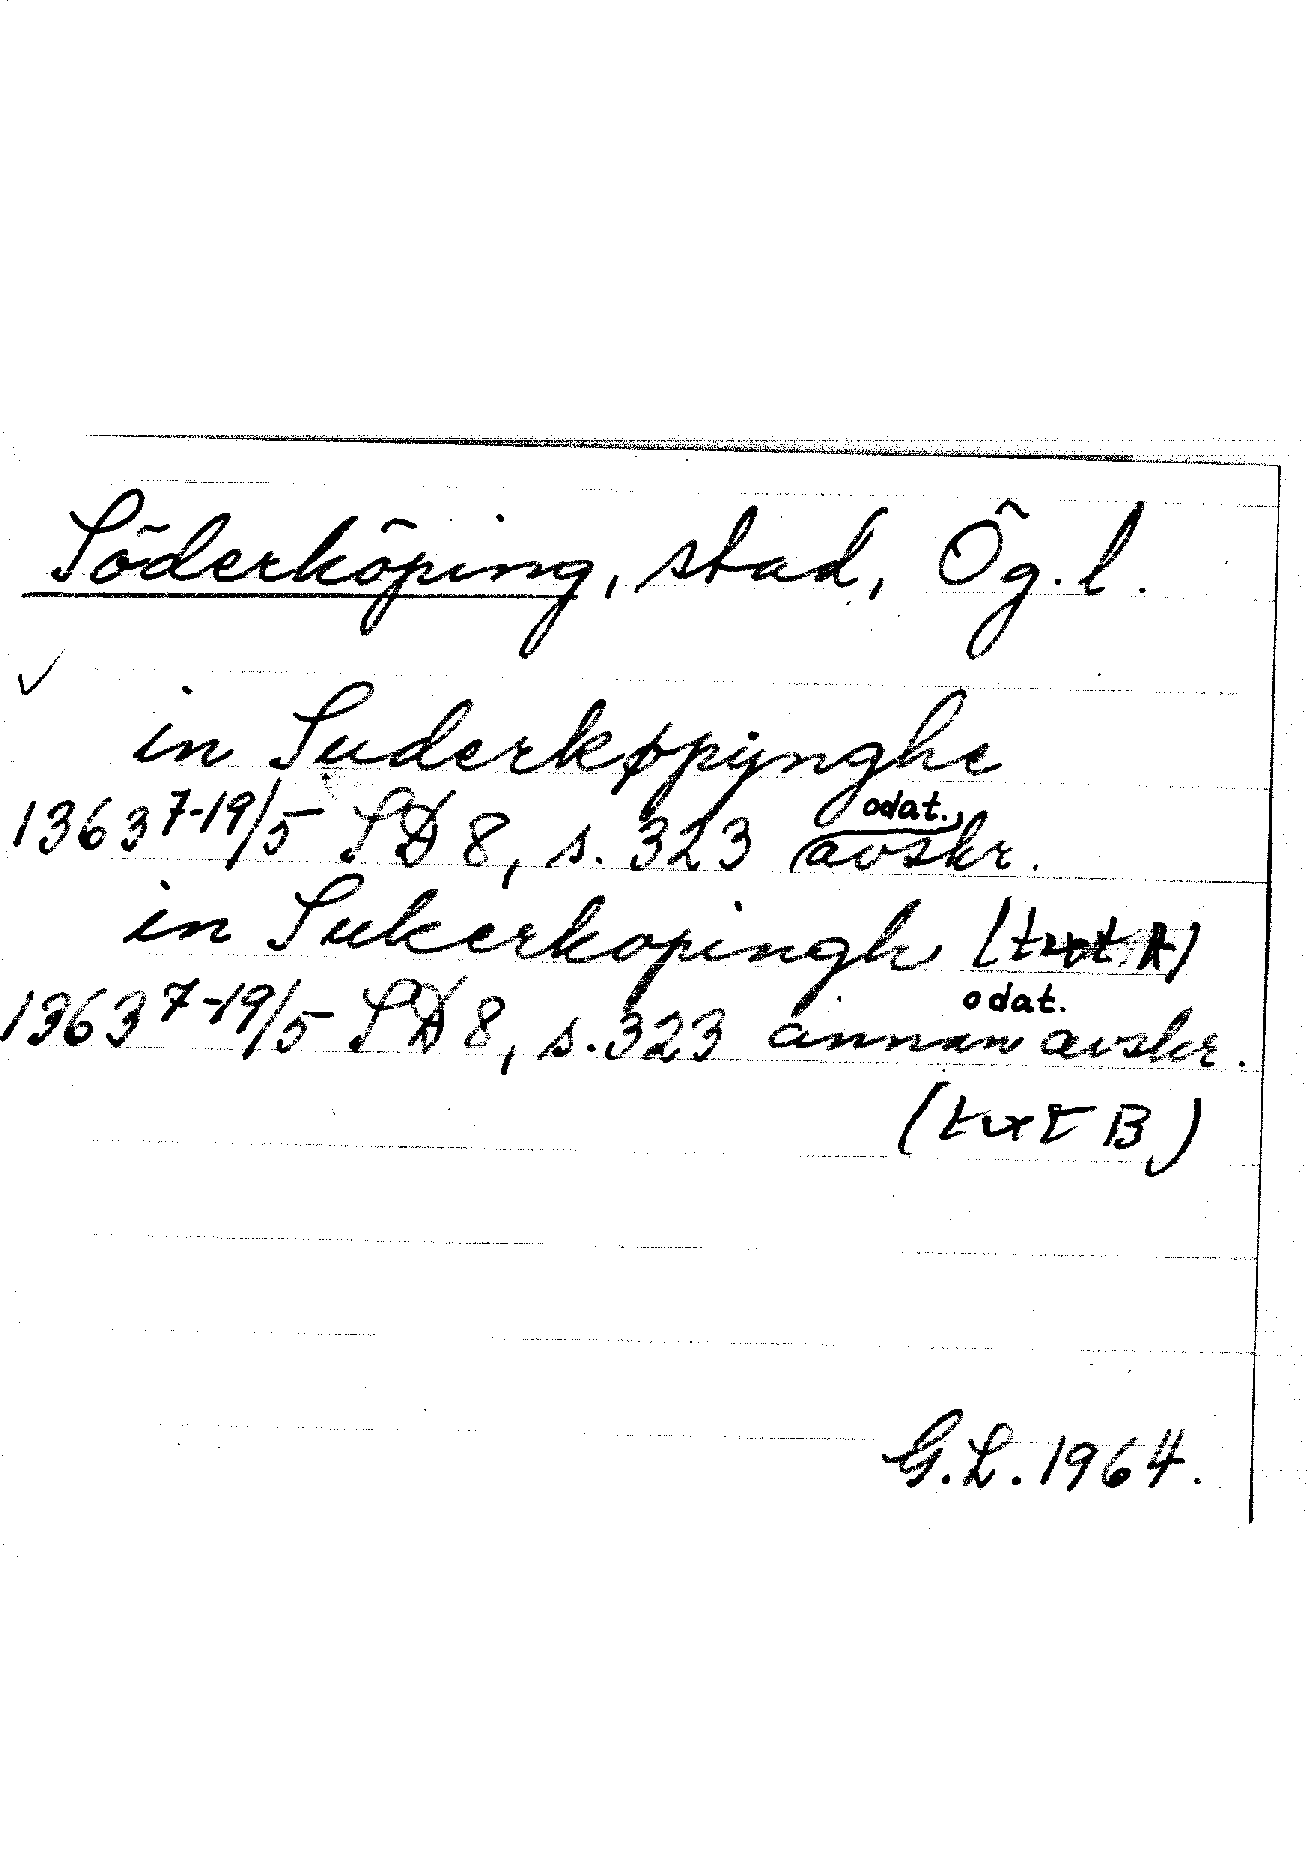 Söderköping, stad, Ög. l.
✓
in Suderkøpÿnghe
1363 7-19/5 SD 8, s. 323 odat. avskr.
in Sukerkopingh (txt A)
1363 7-19/5 SD 8, s. 323 annan odat. avskr.
(txt B)
G.L. 1964.